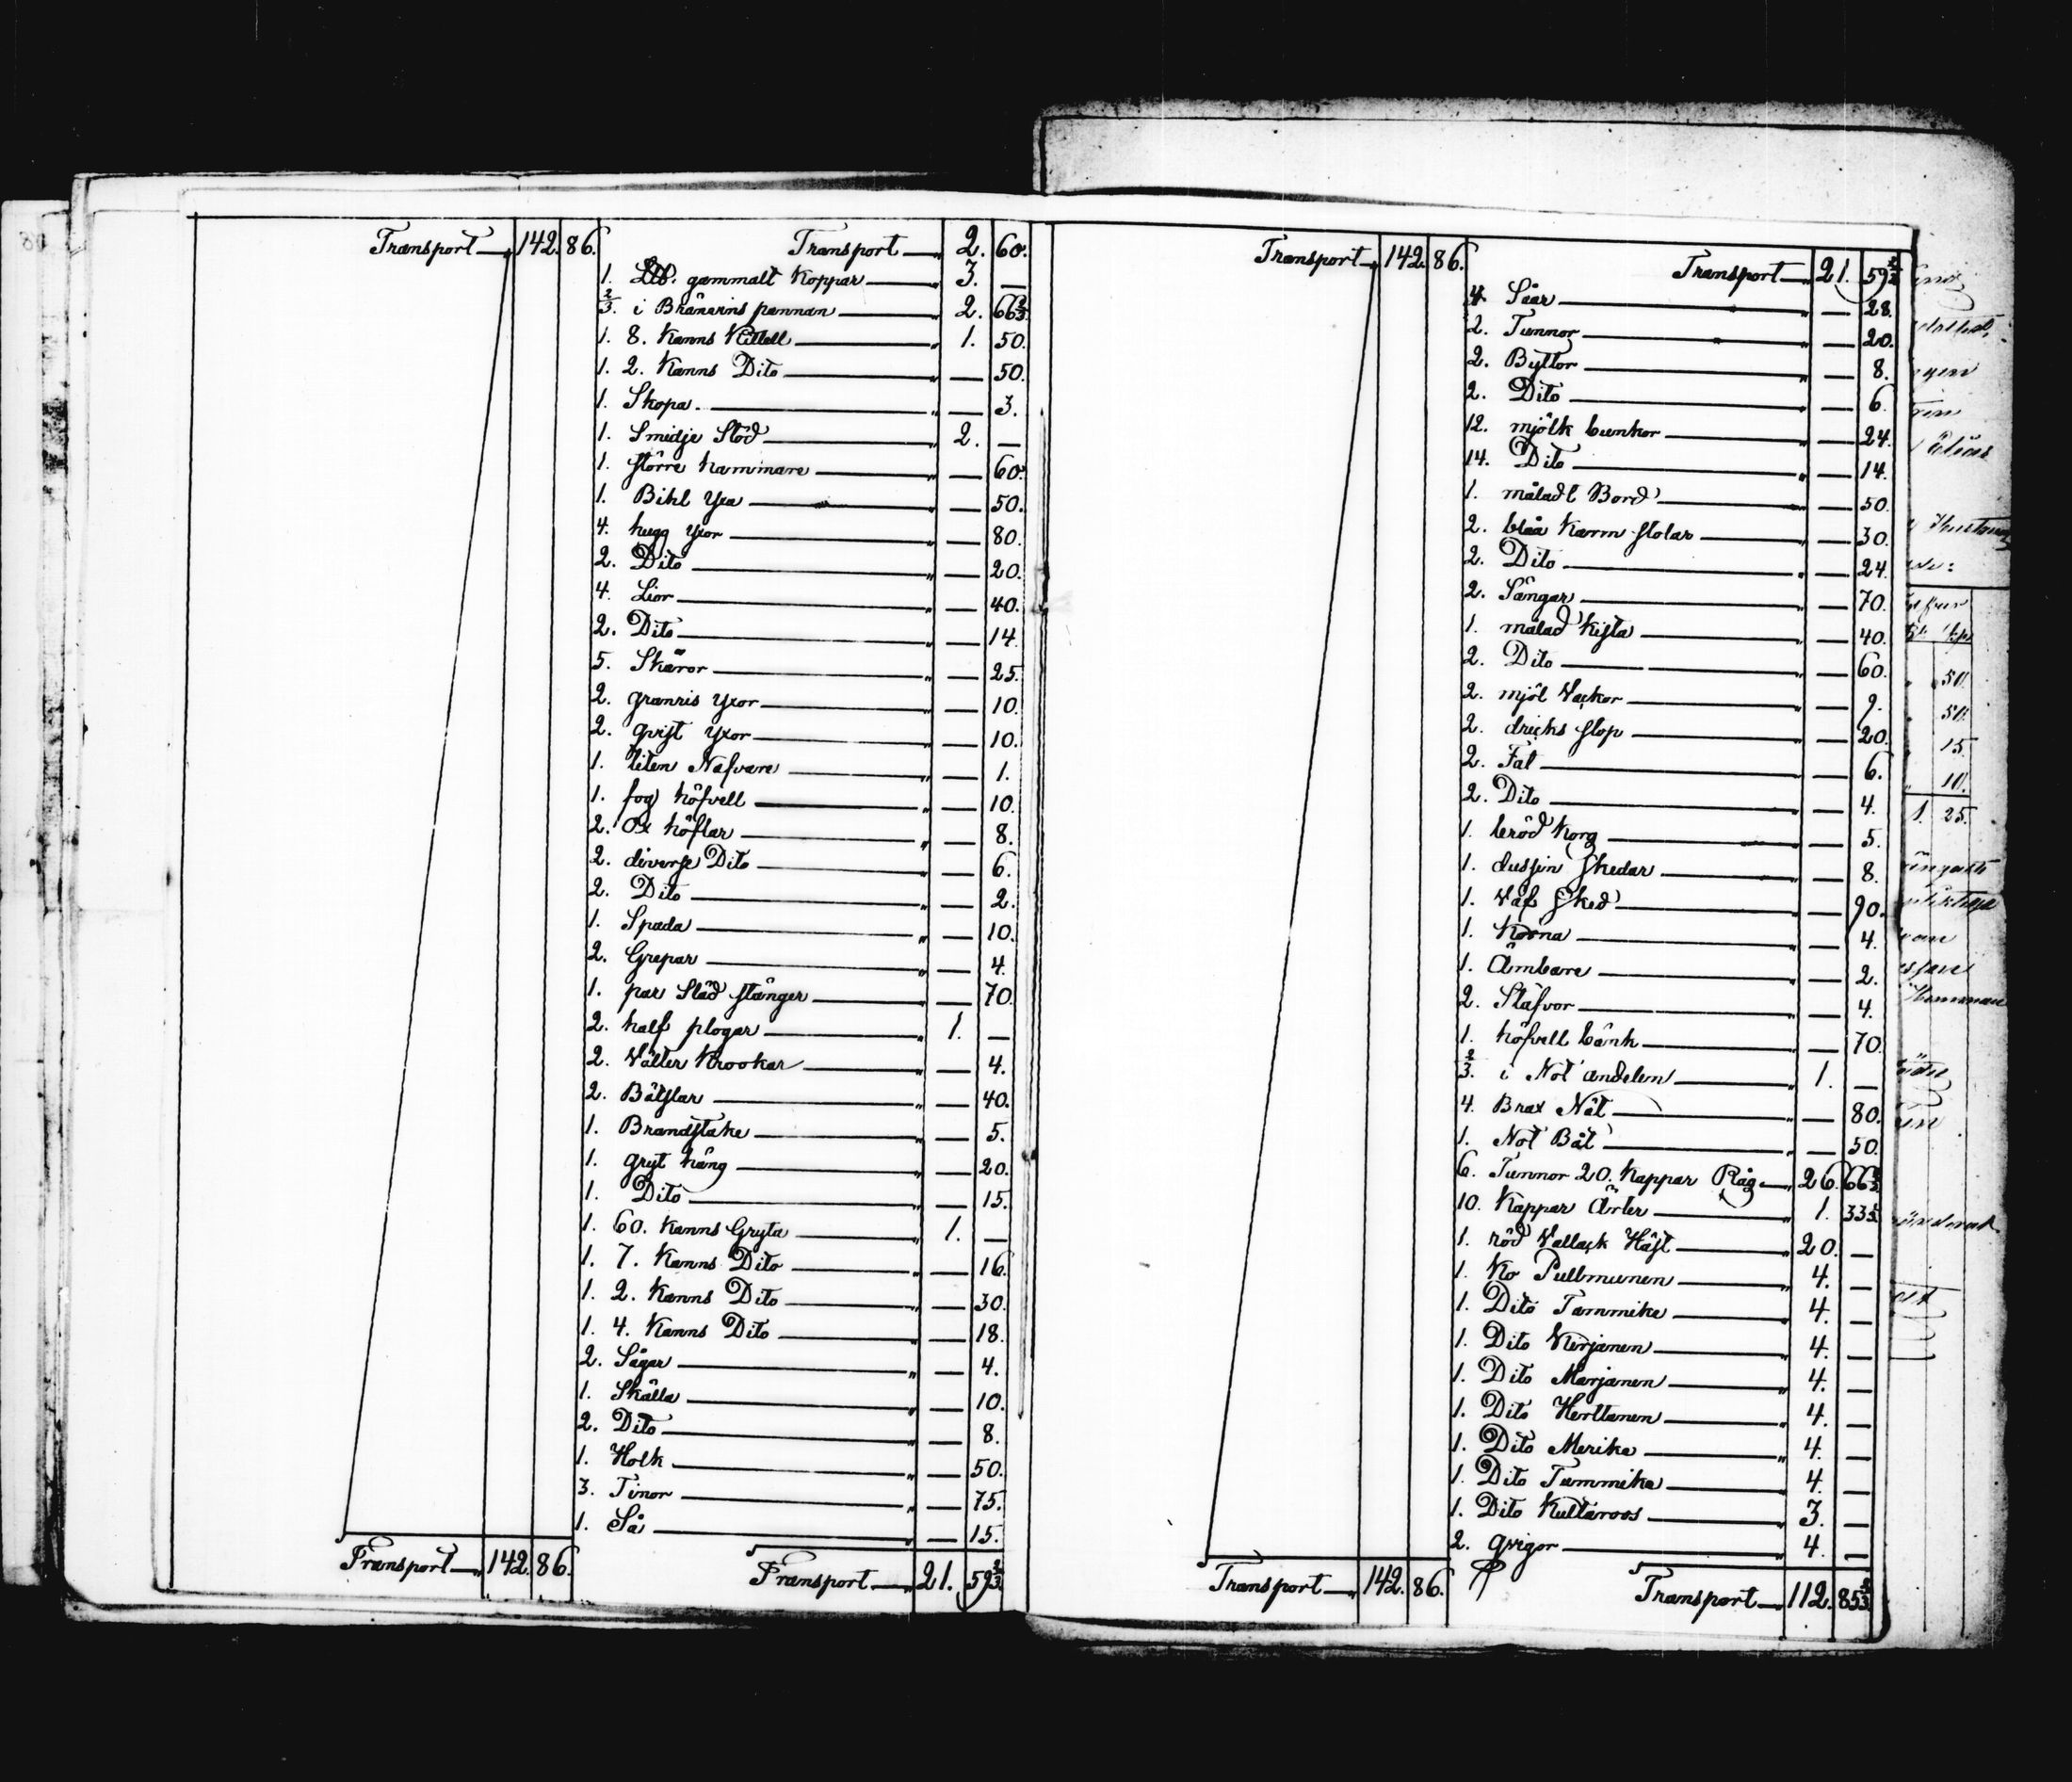 Transport 142. 86.
Transport 2. 60.
1. L℔. gammalt Koppar 3. —
2/3. i Bränvins pannan 2. 66 2/3.
1. 8. Kanns Kittell 1. 50.
1. 2. Kanns Dito — 50.
1. Skopa. — 3.
1. Smidje Stöd 2. —
1. större hammare — 60.
1. Bihl Yxa — 50.
4. hugg Yxor — 80.
2. Dito — 20.
4. Lior — 40.
2. Dito — 14.
5. Skäror — 25.
2. granris Yxor — 10.
2. qvist Yxor — 10.
1. liten Nafvare — 1.
1. fog höfvell — 10.
2. Ox höflar — 8.
2. diverse Dito — 6.
2. Dito — 2.
1. Spada — 10.
2. Grepar — 4.
1. par Släd stänger — 70.
2. half plogar 1. —
2. Välter Krookar — 4.
2. Bätslar — 40.
1. Brandstake — 5.
1. gryt häng — 20.
1. Dito — 15.
1. 60. Kanns Gryta 1. —
1. 7. Kanns Dito — 16.
1. 2. Kanns Dito — 30.
1. 4. Kanns Dito — 18.
2. Sågar — 4.
1. Skälla — 10.
2. Dito — 8.
1. Holk — 50.
3. Tinor — 75.
1. Så — 15.
Transport 142. 86.
Transport 21. 59 2/3.
Transport 142. 86.
Transport 21. 59 2/3
4 Såar — 28.
2. Tunnor — 20.
2. Byttor — 8.
2. Dito — 6.
12. mjölk bunkor — 24.
14. Dito — 14.
1. måladt Bord — 50.
2. blåa Karm stolar — 30.
2. Dito — 24.
2. Sängar — 70.
1. målad Kista — 40.
2. Dito — 60.
2. mjöl Vackor — 9.
2. dricks stop — 20.
2. Fat — 6.
2. Dito — 4.
1. bröd Korg — 5.
1. dussin skedar — 8.
1. Väf sked — 90.
1. Körna — 4.
1. Ämbare — 2.
2. Stäfvor — 4.
1. höfvell bänk — 70.
2/3. i Not andelen 1. —
4. Brax Nät — 80.
1. Not Båt — 50.
6. Tunnor 20. Kappar Råg 26. 66 2/3.
10. Kappar Ärter 1. 33 1/3.
1. röd Vallack Häst 20. —
1. Ko Pullmunen 4. —
1. Dito Tammike 4. —
1. Dito Kirjanen 4. —
1. Dito Marjanen 4. —
1. Dito Herttanen 4. —
1. Dito Merike 4. —
1. Dito Tummike 4. —
1. Dito Kultaroos 3. —
2. qvigor 4. —
Transport 142. 86.
Transport 112. 85 2/3.
50.
50.
15.
10.
1. 25.